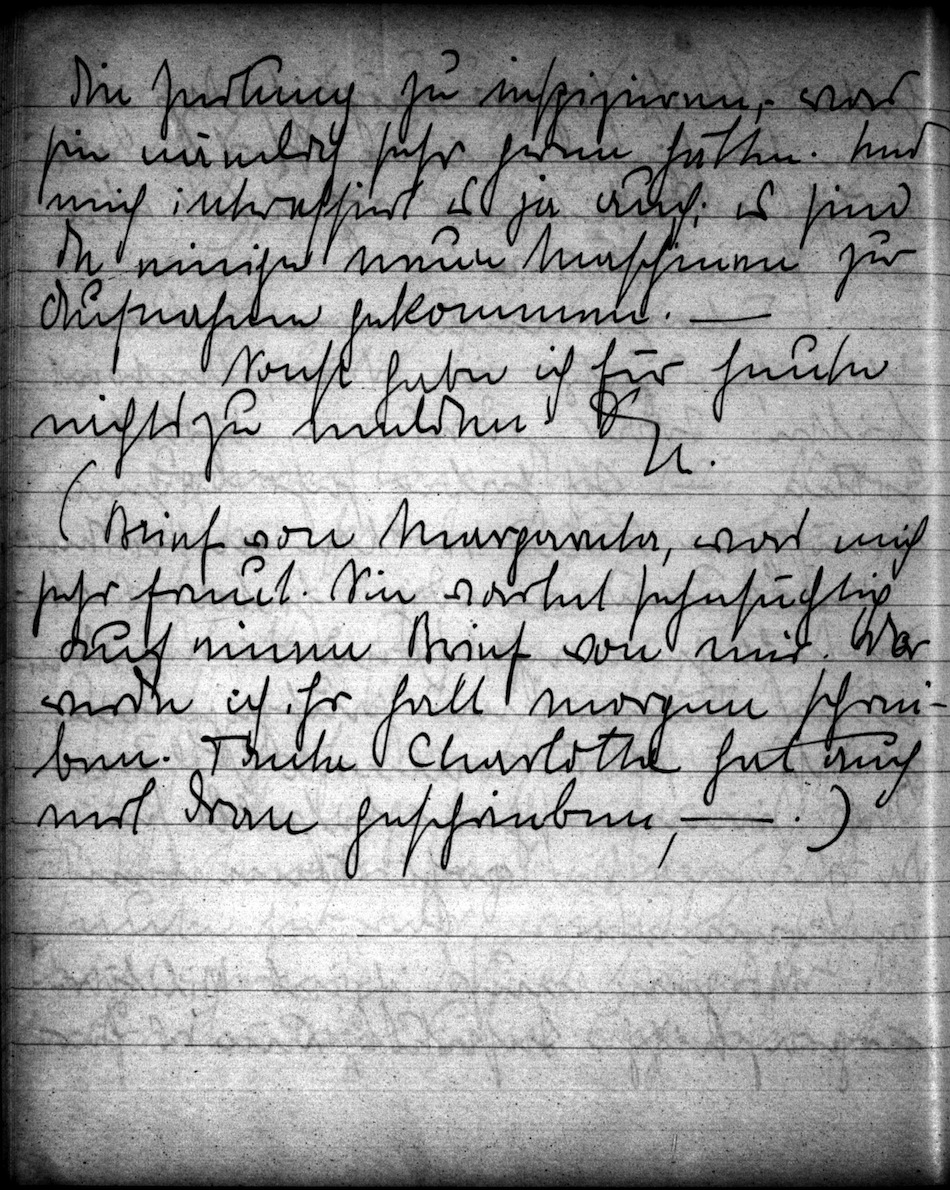 die Zeitung zu inspizieren, was
sie nämlich sehr gerne hätten. Und
mich interessiert es ja auch; es sind
da einige neue Maschinen zur
Aufnahme gekommen. —
Sonst habe ich für heute
nichts zu melden!
(Brief von Margareta, was mich
sehr freut. Sie wartet sehnsüchtig
auf einen Brief von mir. Da
werde ich ihr halt morgen schrei-
ben. Tante Charlotte hat auch
mit dran geschrieben, — .)